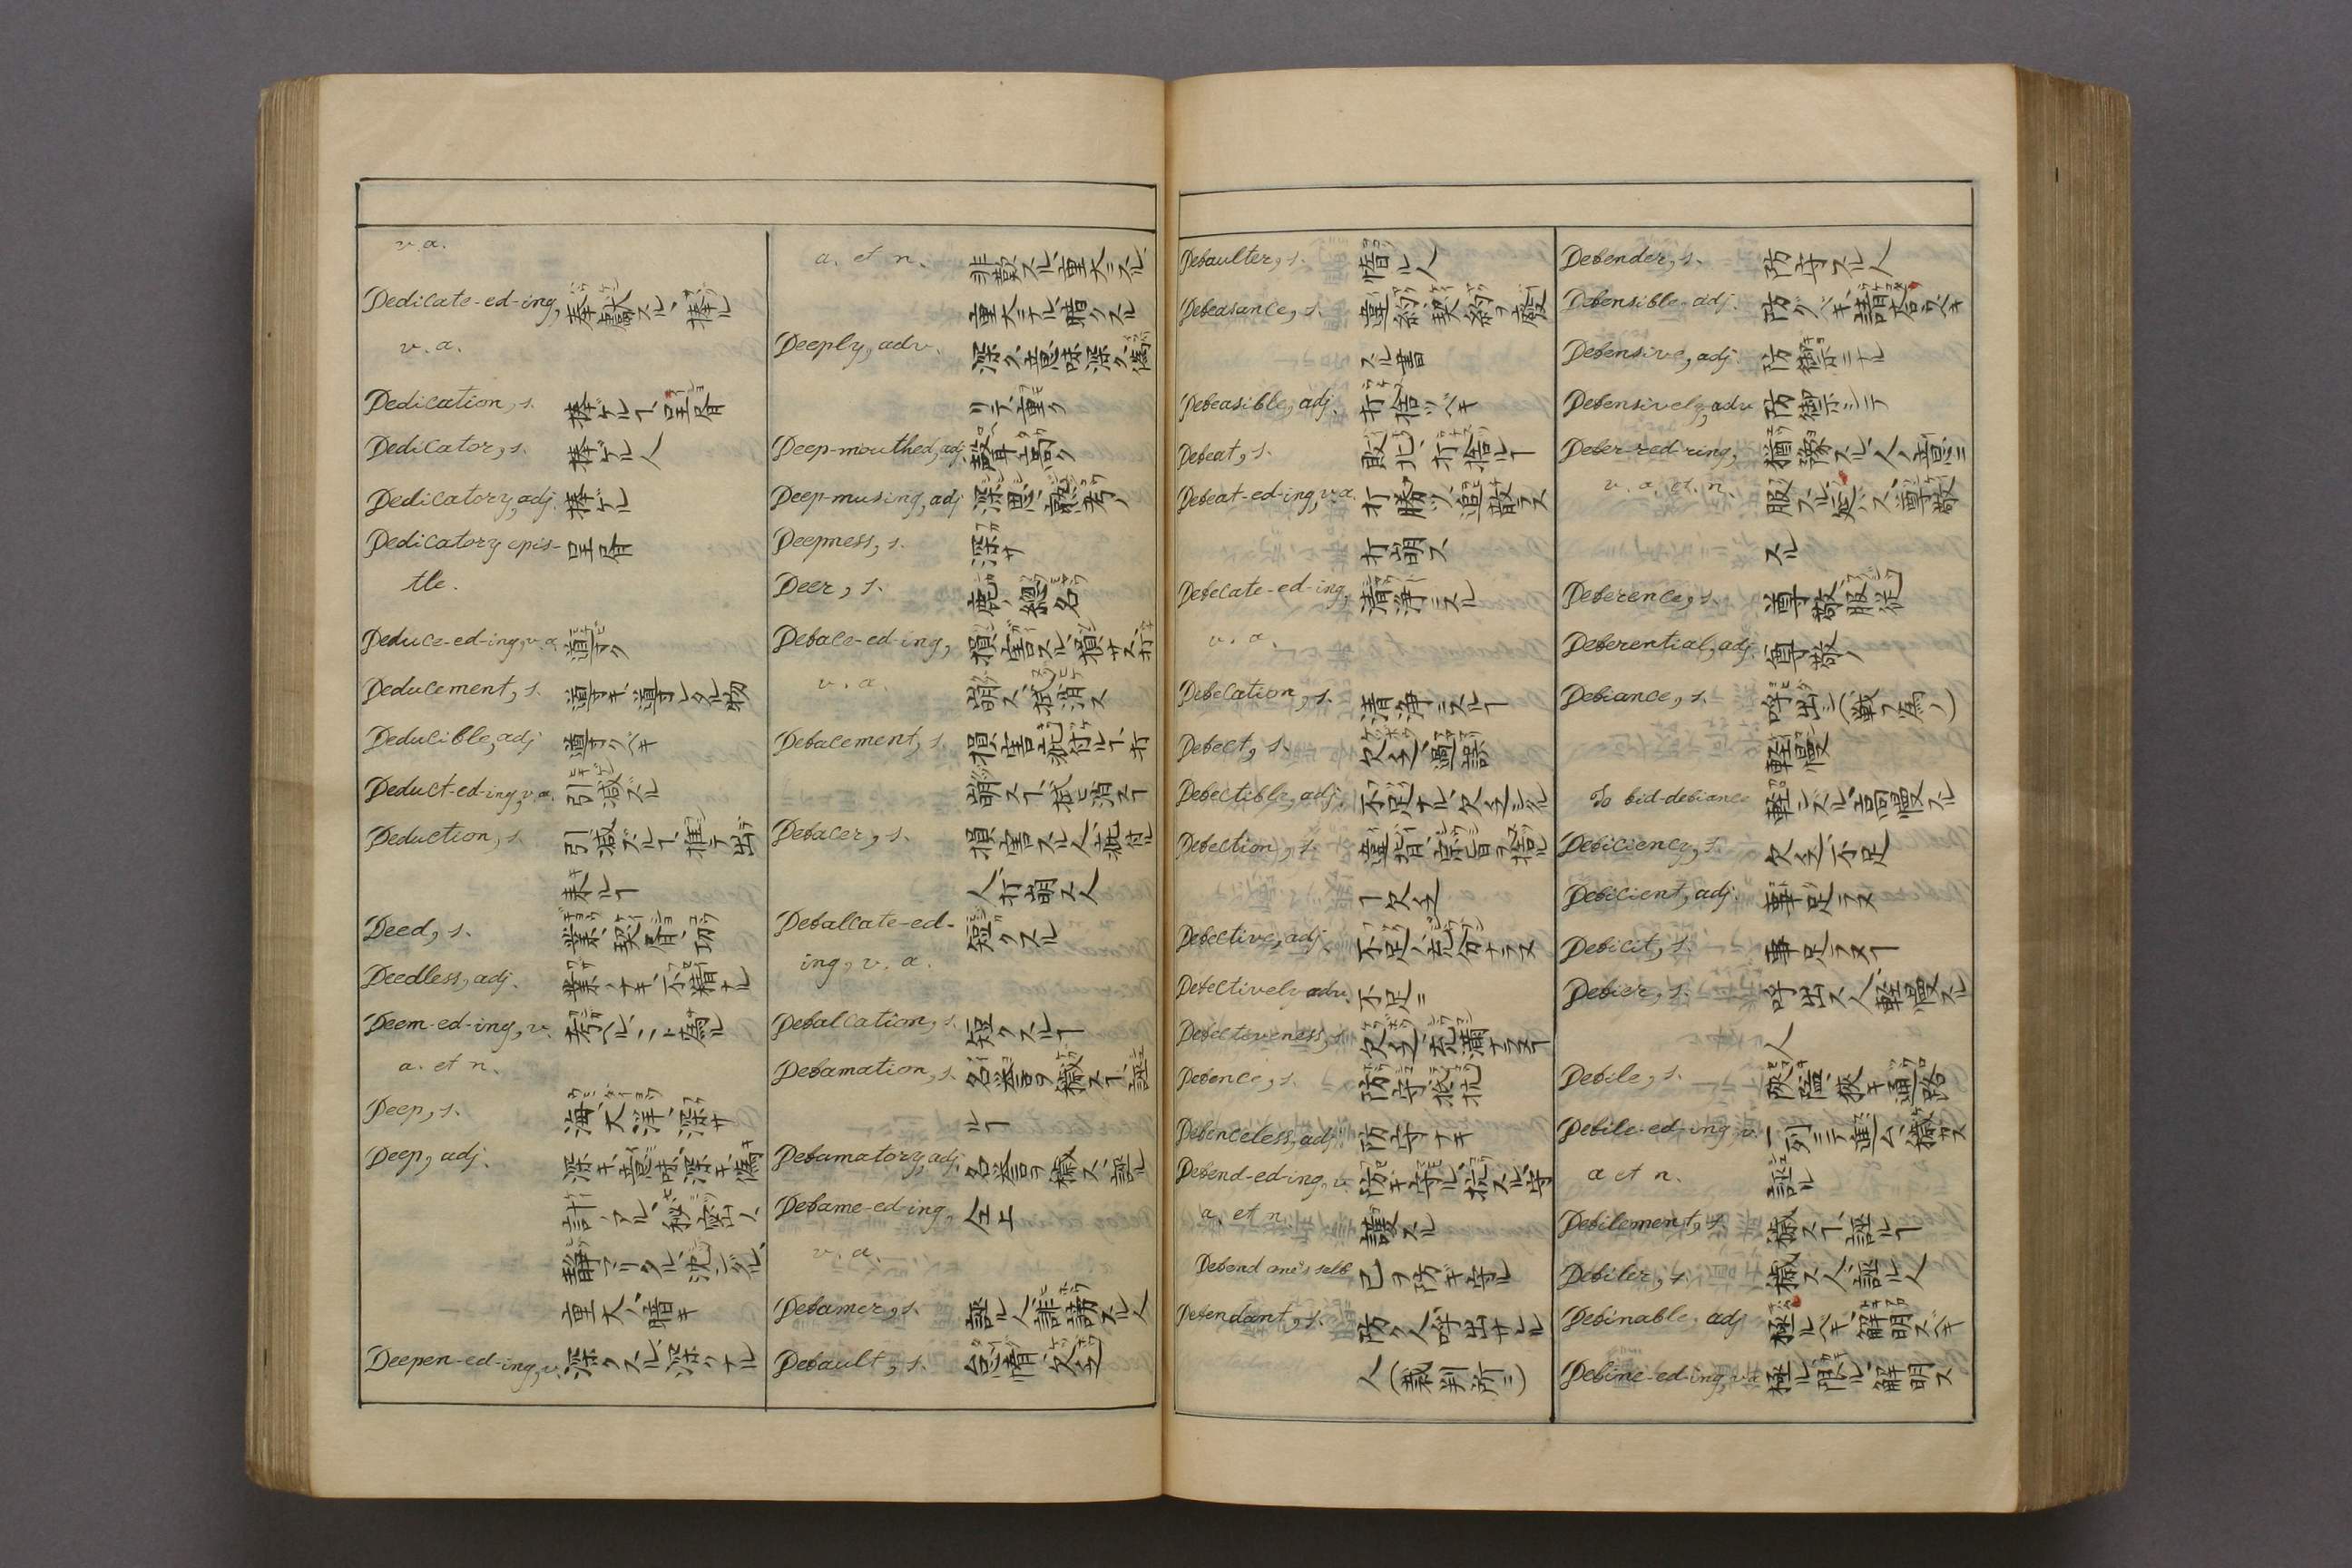 v.a.
Dedicate-ed-ing, 奉献スル、捧ル
v.a.
Dedication, s. 捧ゲルヿ、呈書
Dedicator, s. 捧ゲル人
Dedicatory, adj. 捧ゲル
Dedicatory epis- 呈書
tle.
Deduce-ed-ing, v.a. 導ク
Deducement, s. 導キ、導レタル物
Deducible, adj 導クベキ
Deduct-ed-ing, v.a. 引減ズル
Deduction, s. 引減ズルヿ、推テ出
来ルヿ
Deed, s. 業、契書、功
Deedless, adj. 業ノナキ、不精ナル
Deem-ed-ing, v. 考ヘル、ニト為ル
a. et n.
Deep, s. 海、大洋、深サ
Deep, adj. 深キ、意味深キ、偽
計ノアル、秘密ノ
静マリタル、沈ミタル、
重大ノ、暗キ
Deepen-ed-ing, v. 深クスル、深クナル
a. et n. 非歎スル、重大ニスル
重大ニナル、暗クスル
Deeply, adv. 深ク、意味深ク、偽
リテ、重ク
Deep-mouthed, adj 聲高ク
Deep-musing, adj 深思、熟考ノ
Deepness, s. 深サ
Deer, s. 鹿ノ總名
Deface-ed-ing, 損害スル、損サス、打
v. a. 崩ス、抵消ス
Defacement, s. 損害、疵付ルヿ、打
崩スヿ、抵ヒ消スヿ
Defacer, s. 損害スル人、疵付ル
人、打崩ス人
Defalcate-ed- 短クスル
ing, v. a.
Defalcation, s. 短クスルヿ
Defamation, s. 名誉ヲ穢スヿ、誣
ルヿ
Defamatory, adj. 名誉ヲ穢ス、誣ル
Defame-ed-ing, 仝上
v. a.
Defamer, s. 誣ル人、誹謗スル人
Default, s. 怠惰、欠乏
Defaulter, s. 惰ル人
Defeasance, s. 違約、契約ヲ廢
スル書
Defeasible, adj. 打捨ツベキ
Defeat, s. 敗北、打捨ルヿ
Defeat-ed-ing, v.a. 打勝ツ、追散ラス
打崩ス
Defecate-ed-ing, 清浄ニスル
v. a.
Defecation, s. 清浄ニスルヿ
Defect, s. 欠乏、過誤
Defectible, adj. 不足ナル、欠乏シタル
Defection, s. 違背、宗旨ヲ捨ル
ヿ、欠乏
Defective, adj. 不足ノ、充分ナラヌ
Defectively adv. 不足ニ
Defectiveness, s. 欠乏、充満ナラヌヿ
Defence, s. 防守、抵抗
Defenceless, adj 防守ナキ
Defend-ed-ing, v. 防キ守ル、抗スル、守
a. et n. 護スル
Defend one's self 己ヲ防キ守ル
Defendant, s. 防ク人、呼出サレル
人(裁判所ニ)
Defender, s. 防守スル人
Defensible, adj. 防グベキ、請合フベキ
Defensive, adj. 防禦ニナル
Defensively, adv 防禦シテ
Defer-red-ring, 猶豫スル、人ノ意ニ
v. a. et. n. 服スル、延バス、尊敬
スル
Deference, s. 尊敬、服従
Deferential, adj. 尊敬ノ
Defiance, s. 呼出シ(戦ノ為ノ)
軽慢
To bid-defiance 軽ンズル、高慢スル
Deficiency, s. 欠乏、不足
Deficient, adj. 事足ラヌ
Deficit, s. 事足ラヌヿ
Defier, s. 呼出ス人、軽慢スル
人
Defile, s. 陜隘、狭キ通路
Defile-ed-ing, v. 一列ニテ進ム、穢ガス
a et n. 誣ル
Defilement, s. 穢スヿ、誣ルヿ
Defiler, s. 穢ス人、誣ル人
Definable, adj 極ルベキ、解明スベキ
Define-ed-ing, v.a 極ル、限ル、解明ス